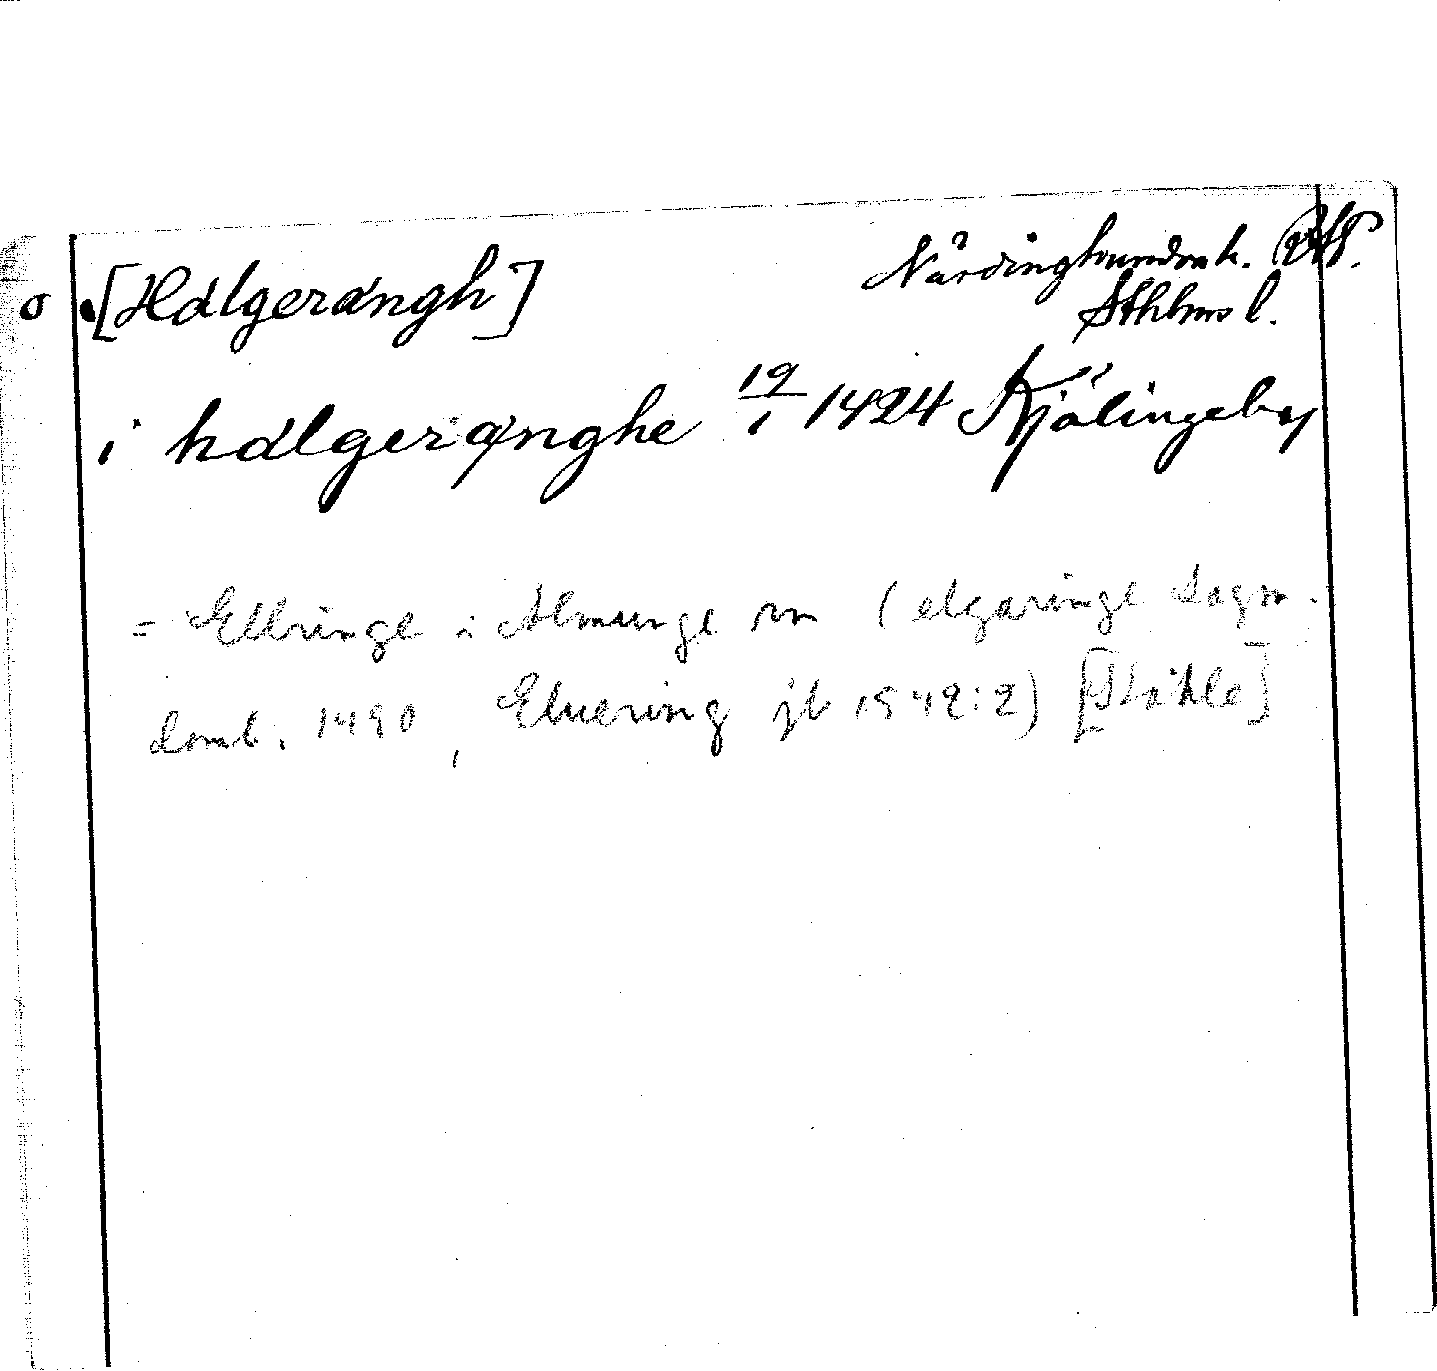 o [Hælgerængh] Närdinghundra h. Sthlms l.
i hælgerænghe 19/1 1424 Kjölingeby
= Ellringe i Almunge sn (elgæringe Lagm.
domb. 1490, Eluering jb 1542:2) [Ståhle]